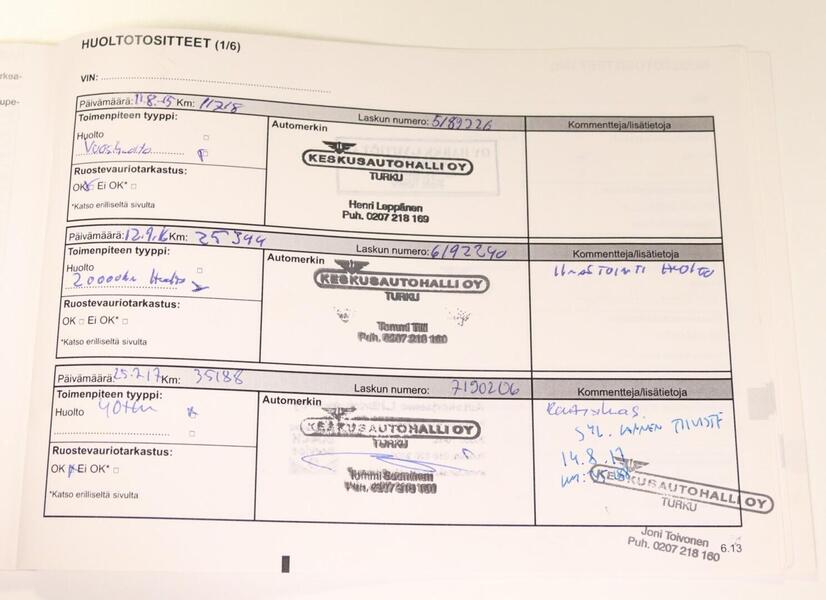 HUOLTOTOSITTEET (1/6)
VIN:
Päivämäärä: 11.8.15 Km: 11218
Laskun numero: 5/89226
Kommentteja/lisätietoja
Toimenpiteen tyyppi:
Automerkin
Huolto
Vuosihuolto
KESKUSAUTOHALLI OY
TURKU
Ruostevauriotarkastus:
OK Ei OK*
*Katso erilliseltä sivulta
Henri Leppänen
Puh. 0207 218 169
Päivämäärä: 12.9.16 Km: 25344
Laskun numero: 6/92240
Kommentteja/lisätietoja
Toimenpiteen tyyppi:
Automerkin
Huolto
20000km Huolto
KESKUSAUTOHALLI OY
TURKU
ILMASTOINTI HUOLTO
Ruostevauriotarkastus:
OK Ei OK*
*Katso erilliseltä sivulta
Tommi
Puh. 0207 218 160
Päivämäärä: 25.7.17 Km: 35188
Laskun numero: 7190206
Kommentteja/lisätietoja
Toimenpiteen tyyppi:
Automerkin
Huolto
40tkm
KESKUSAUTOHALLI OY
TURKU
SYL. KANNEN TIIVISTE
14.8.17
km:
Ruostevauriotarkastus:
OK Ei OK*
*Katso erilliseltä sivulta
Tommi
Puh. 0207 218 160
KESKUSAUTOHALLI OY
TURKU
Joni Toivonen
Puh. 0207 218 160
6.13